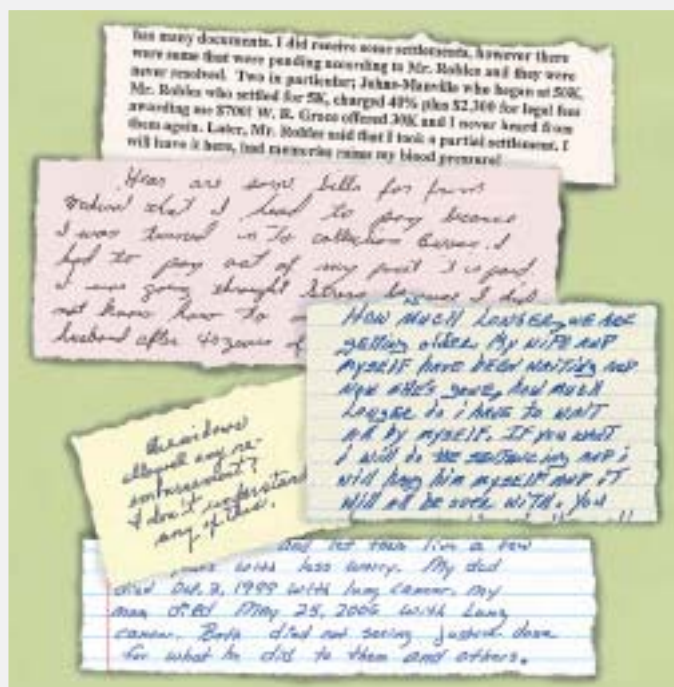 has many documents. I did receive some settlements, however there
were some that were pending according to Mr. Robles and they were
never resolved. Two in particular; Johns-Manville who began at 50K,
Mr. Robles who settled for 5K, charged 40% plus $2,300 for legal fees
awarding me $700! W. R. Grace offered 30K and I never heard from
them again. Later, Mr. Robles said that I took a partial settlement. I
will leave it here, bad memories raises my blood pressure!
Hear are some bills for from
Medical that I had to pay because
I was turned in to collection
had to pay out of my
I was going straight Stress because I did
not know how to
husband after 40 years of
HOW MUCH LONGER, WE ARE
getting older. My WIFE AND
MYSELF HAVE BEEN WAITING AND
NOW SHE'S GONE, HOW MUCH
LONGER do i HAVE TO WAIT
All by MYSELF. IF you WANT
I will do THE SENTENCING AND i
will hang him MYSELF AND iT
Will All BE OVER WITH. you
are widows
allowed any re-
embursement?
I don't understand
any of this.
and let them live a few
years with less worry. My dad
died Oct. 3, 1999 with lung cancer. My
mom died May 25, 2006 with Lung
cancer. Both died not seeing justice done
for what he did to them and others.